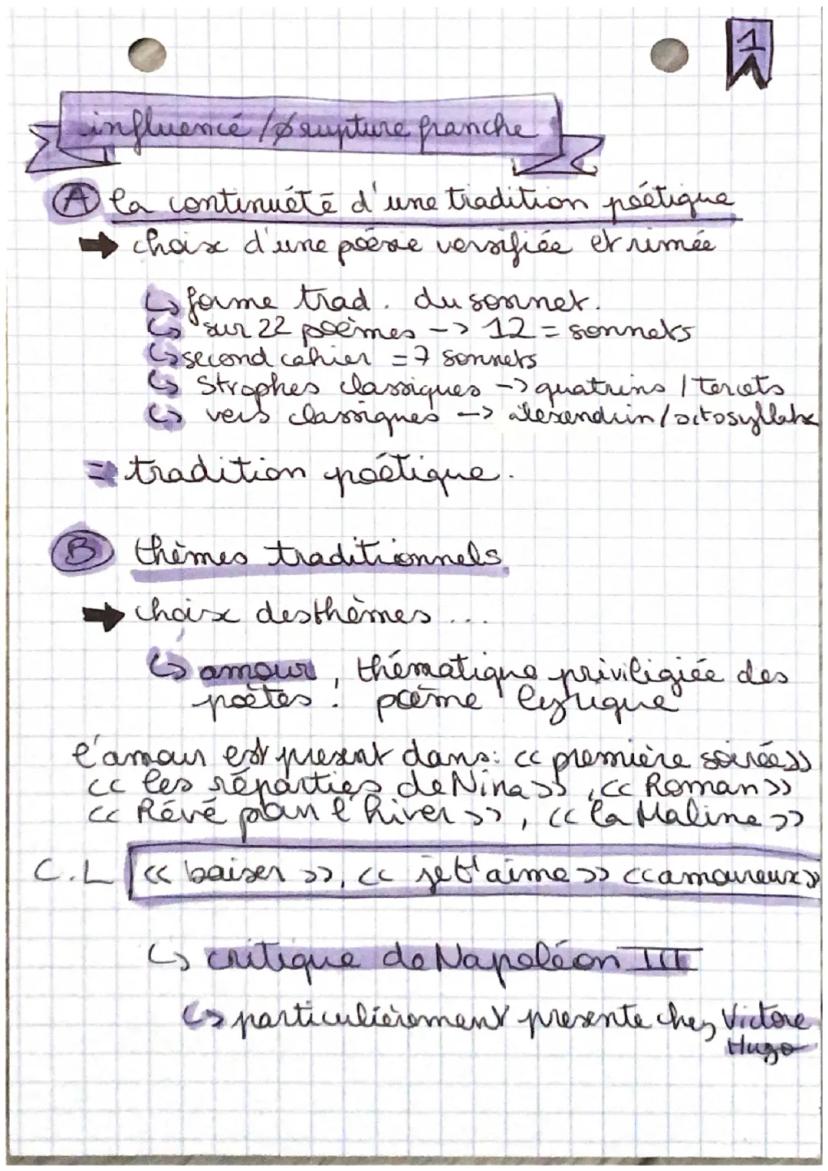 1
influencé / Ø rupture franche
A la continuété d'une tradition poétique
➡ choix d'une poésie versifiée et rimée
↳ forme trad. du sonnet.
↳ sur 22 poèmes -> 12 = sonnets
↳ second cahier = 7 sonnets
↳ Strophes classiques -> quatrins / tercets
↳ vers classiques -> alexendrin / octosyllabe
= tradition poétique.
B thèmes traditionnels
➡ choix des thèmes ...
↳ amour, thématique priviligiée des
poètes. poème lyrique
l'amour est present dans: << première soirée >>
<< les réparties de Nina >>, << Roman >>
<< Rêvé pour l'hiver >>, << la Maline >>
C.L << baiser >>, << je t'aime >> << amoureux >>
↳ critique de Napoléon III
↳ particulièrement presente chez Victore
Hugo